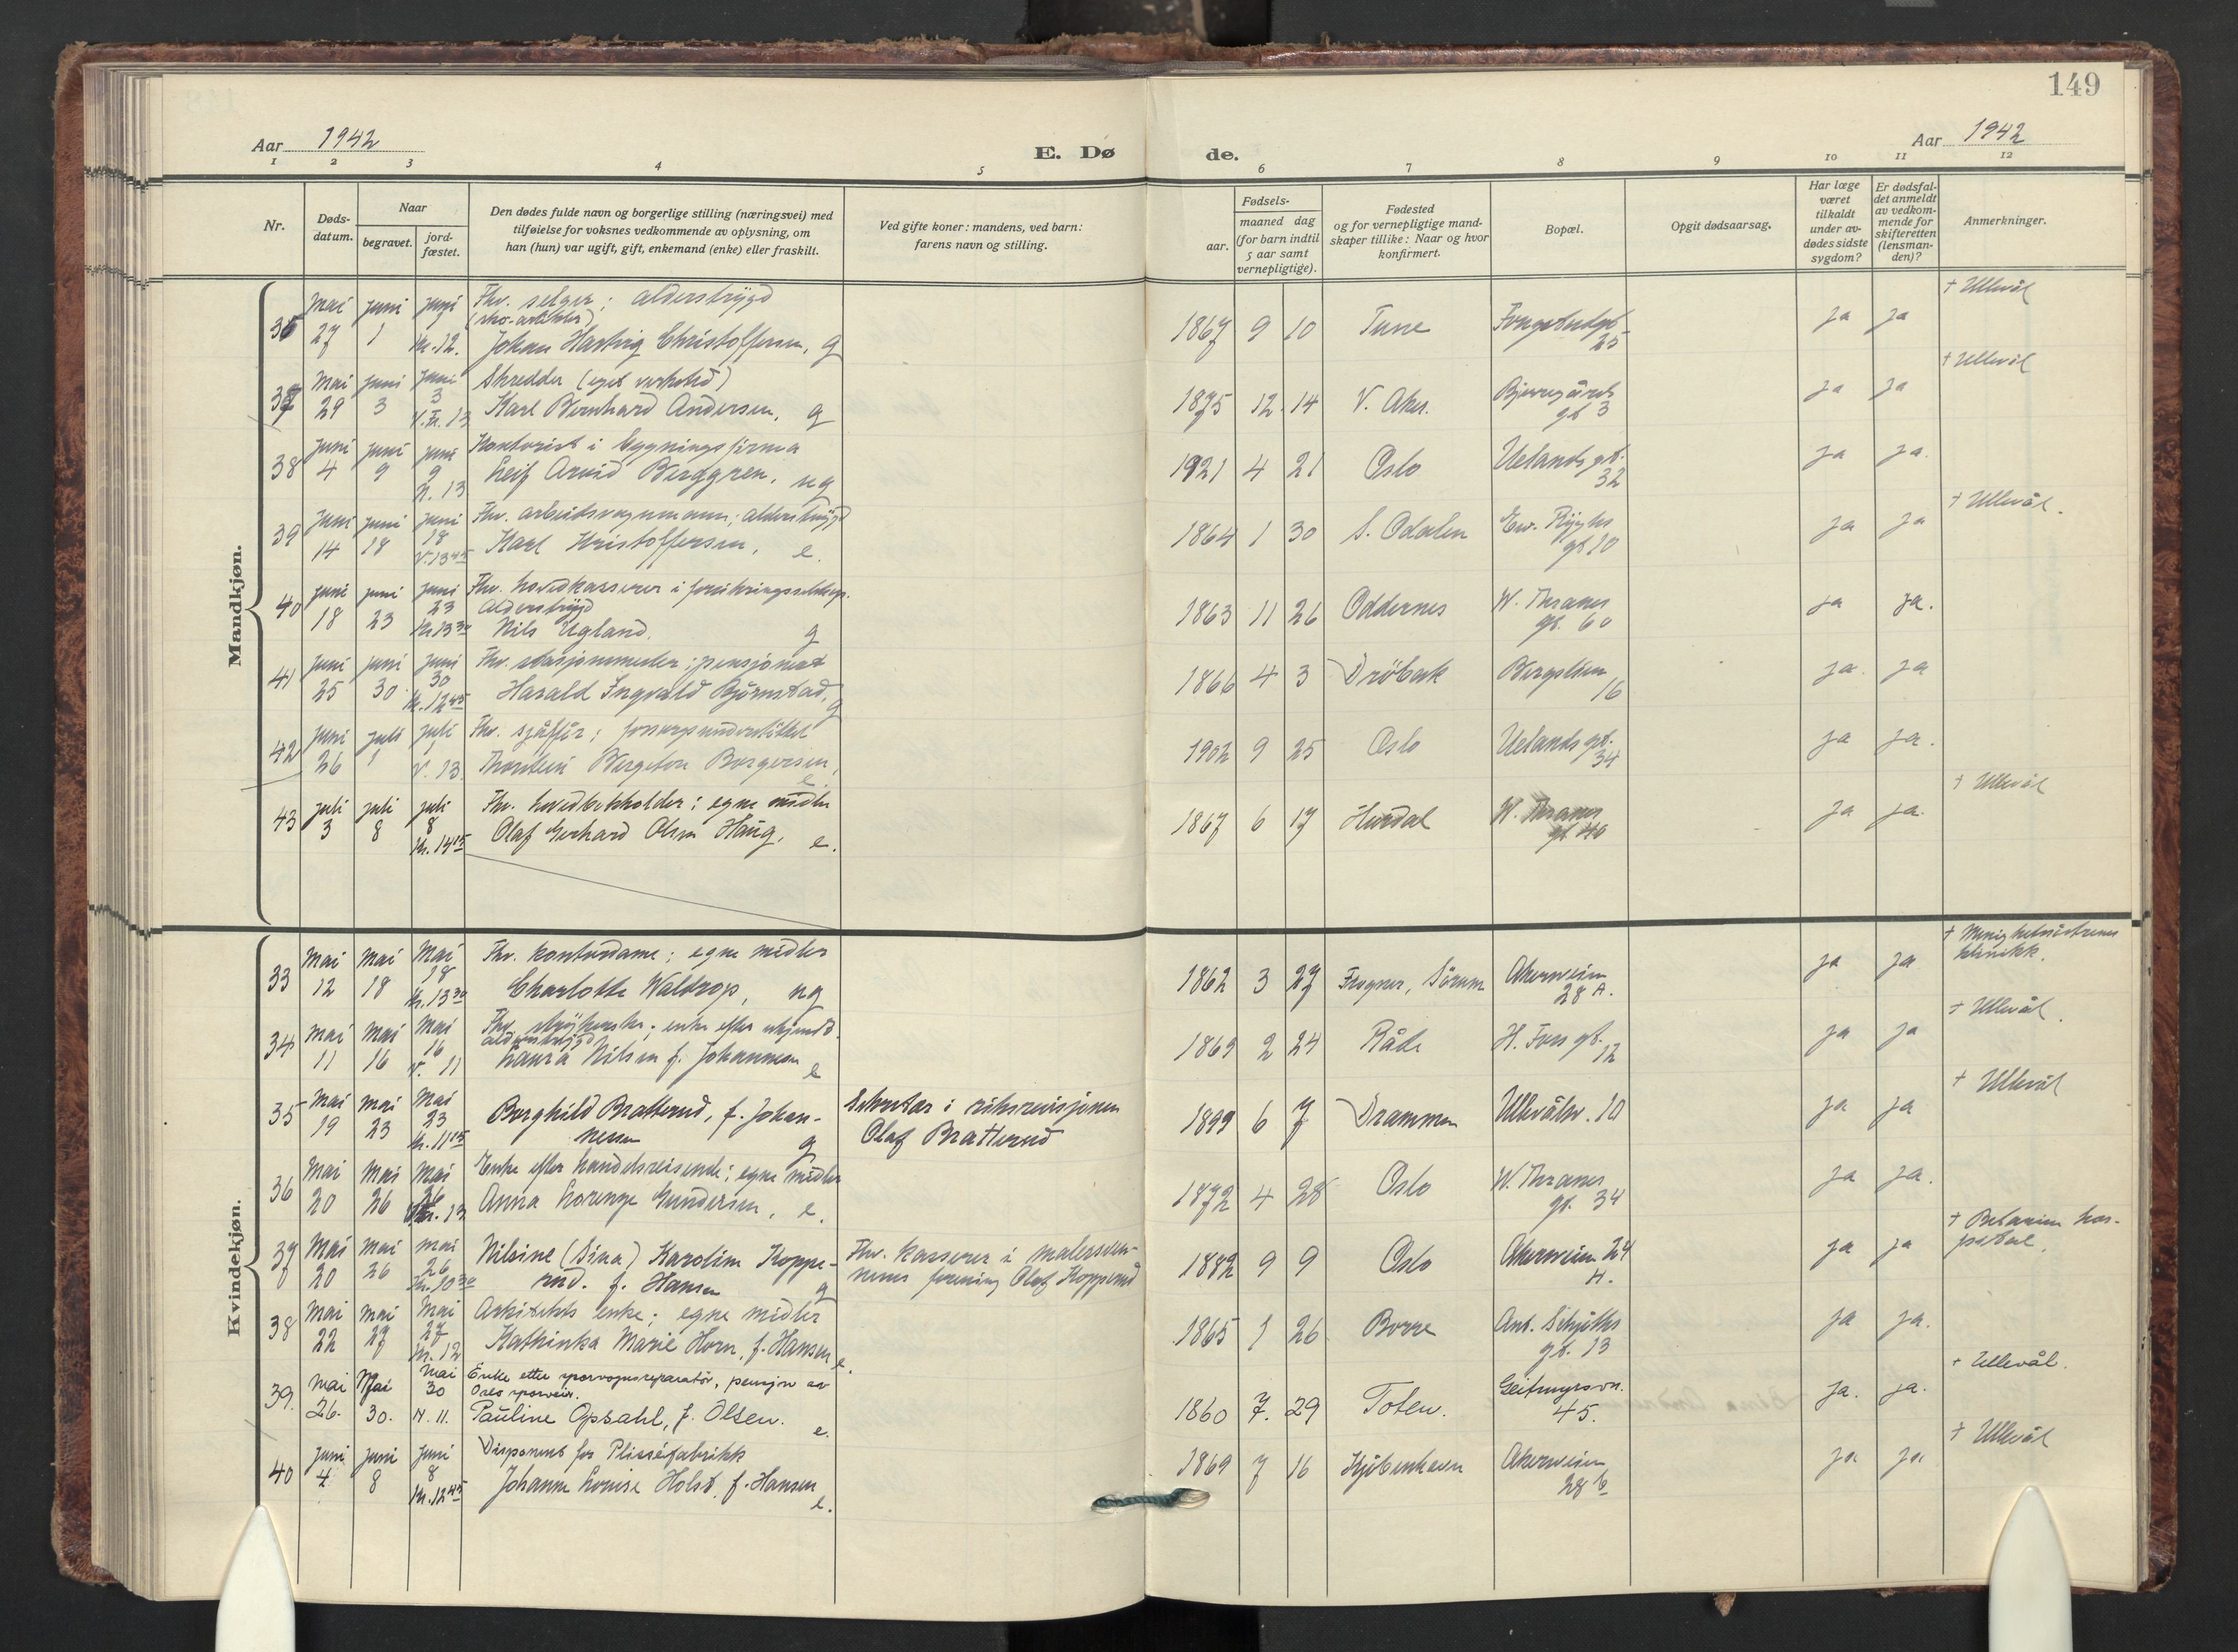 149
Aar 1942
E. Dø
de.
Aar 1942
1 2 3 4 5 6 7 8 9 10 11 12
Nr.
Døds-
datum.
Naar
begravet.
jord-
fæstet.
Den dødes fulde navn og borgerlige stilling (næringsvei) med
tilføielse for voksnes vedkommende av oplysning, om
han (hun) var ugift, gift, enkemand (enke) eller fraskilt.
Ved gifte koner: mandens, ved barn:
farens navn og stilling.
Fødsels-
aar.
maaned dag
(for barn indtil
5 aar samt
vernepligtige).
Fødested
og for vernepligtige mand-
skaper tillike: Naar og hvor
konfirmert.
Bopæl.
Opgit dødsaarsag.
Har læge
været
tilkaldt
under av-
dødes sidste
sygdom?
Er dødsfal-
det anmeldt
av vedkom-
mende for
skifteretten
(lensman-
den)?
Anmerkninger.
Mandkjøn.
Mai juni juni Fhv. selger; alderstrygd † Ullevål
36 27 1 1 kr. 12. Johan Hartvig Christoffersen, g 1867 9 10 Tune 25 ja ja
Mai juni juni Skredder (eget verksted) † Ullevål
37 29 3 3 V.K. 13 Karl Bernhard Andersen, g 1875 12 14 V. Aker. Bjerregårds gt 3 ja ja
juni juni juni Kontorist i bygningsfirma
38 4 9 9 N. 13 Leif Arvid Berggren, ug 1921 4 21 Oslo Uelands gt. 32 ja ja.
juni juni juni Fhv. arbeidsvognmann; alderstrygd † Ullevål.
39 14 18 18 V. 13 45 Karl Kristoffersen, e. 1864 1 30 S. Odalen Ew. Ryghs gt 10 ja ja
juni juni juni Fhv. hovedkasserer i forsikringsselskap.
alderstrygd
40 18 23 23 kr. 13 30 Nils Ugland. g 1863 11 26 Oddernes W. Thranes gt. 60 ja ja.
juni juni juni Fhv. stasjonsmester; pensjonert
41 25 30 30 kr. 12 45 Harald Ingvald Bjørnstad, g 1866 4 3 Drøbak Bergslien 16 ja. ja
juni juli juli Fhv. sjåfør; forsorgsunderstøttet
42 26 1 1 V. 13. Thorstein Bergeton Borgersen, e 1902 9 25 Oslo Uelands gt. 34 ja ja.
juli juli juli Fhv. hovedbokholder; egne midler † Ullevål
43 3 8 8 kr. 14 15 Olaf Gerhard Olsen Haug, e. 1867 6 17 Hurdal W. Thranes gt 40 ja ja.
Kvindekjøn.
Mai Mai Mai Fhv. kontordame; egne midler † Menighetssøstrenes klinikk.
33 12 18 18 kr. 13 30 Charlotte Waldrop, ug 1862 3 27 Frogner, Sørum Akersveien 28 A. ja ja
Mai Mai Mai Fhv. strykerske; enke efter
alderstrygd † Ullevål.
34 11 16 16 V. 11 Laura Nilsen f. Johannesen e 1869 2 24 Råde 12 ja ja
Mai Mai Mai † Ullevål
35 19 23 23 kr. 11 15 Borghild Bratterud, f. Johan-
nessen g Sekretær i riksrevisjonen
Olaf Bratterud 1899 6 7 Drammen Ullevålsv. 10 ja ja
Mai Mai Mai Enke efter handelsreisende; egne midler
36 20 26 26 kr. 13 Anna Lorenze Gundersen, e. 1872 4 28 Oslo W. Thranes gt. 34 ja ja.
Mai Mai Mai † Betanien hos-
pital.
37 20 26 26 kr. 10 30 Nilsine (Sina) Karoline Koppe-
rud. f. Hansen g Fhv. kasserer i malersven-
nenes forening Olaf Kopperud 1882 9 9 Oslo Akersveien 24 ja ja
Mai Mai Mai Arkitekts enke; egne midler
38 22 27 27 kr. 12 Kathinka Marie Horn, f. Hansen e. 1865 1 26 Borre Ant. Schjøths gt. 13 ja ja.
Mai Mai Mai Enke etter sporvognsreparatør, pensjon av
Oslo sporveier. † Ullevål.
39. 26. 30. 30 N. 11. Pauline Opsahl, f. Olsen. e. 1860 7. 29 Toten. Geitmyrsvn. 45. ja. ja.
juni juni juni Disponent for Plisséfabrikk † Ullevål
40 4 8 8 kr. 12 45 Johanne Louise Holst, f. Hansen e. 1869 7 16 Kjøbenhavn Akersveien 28 b ja ja